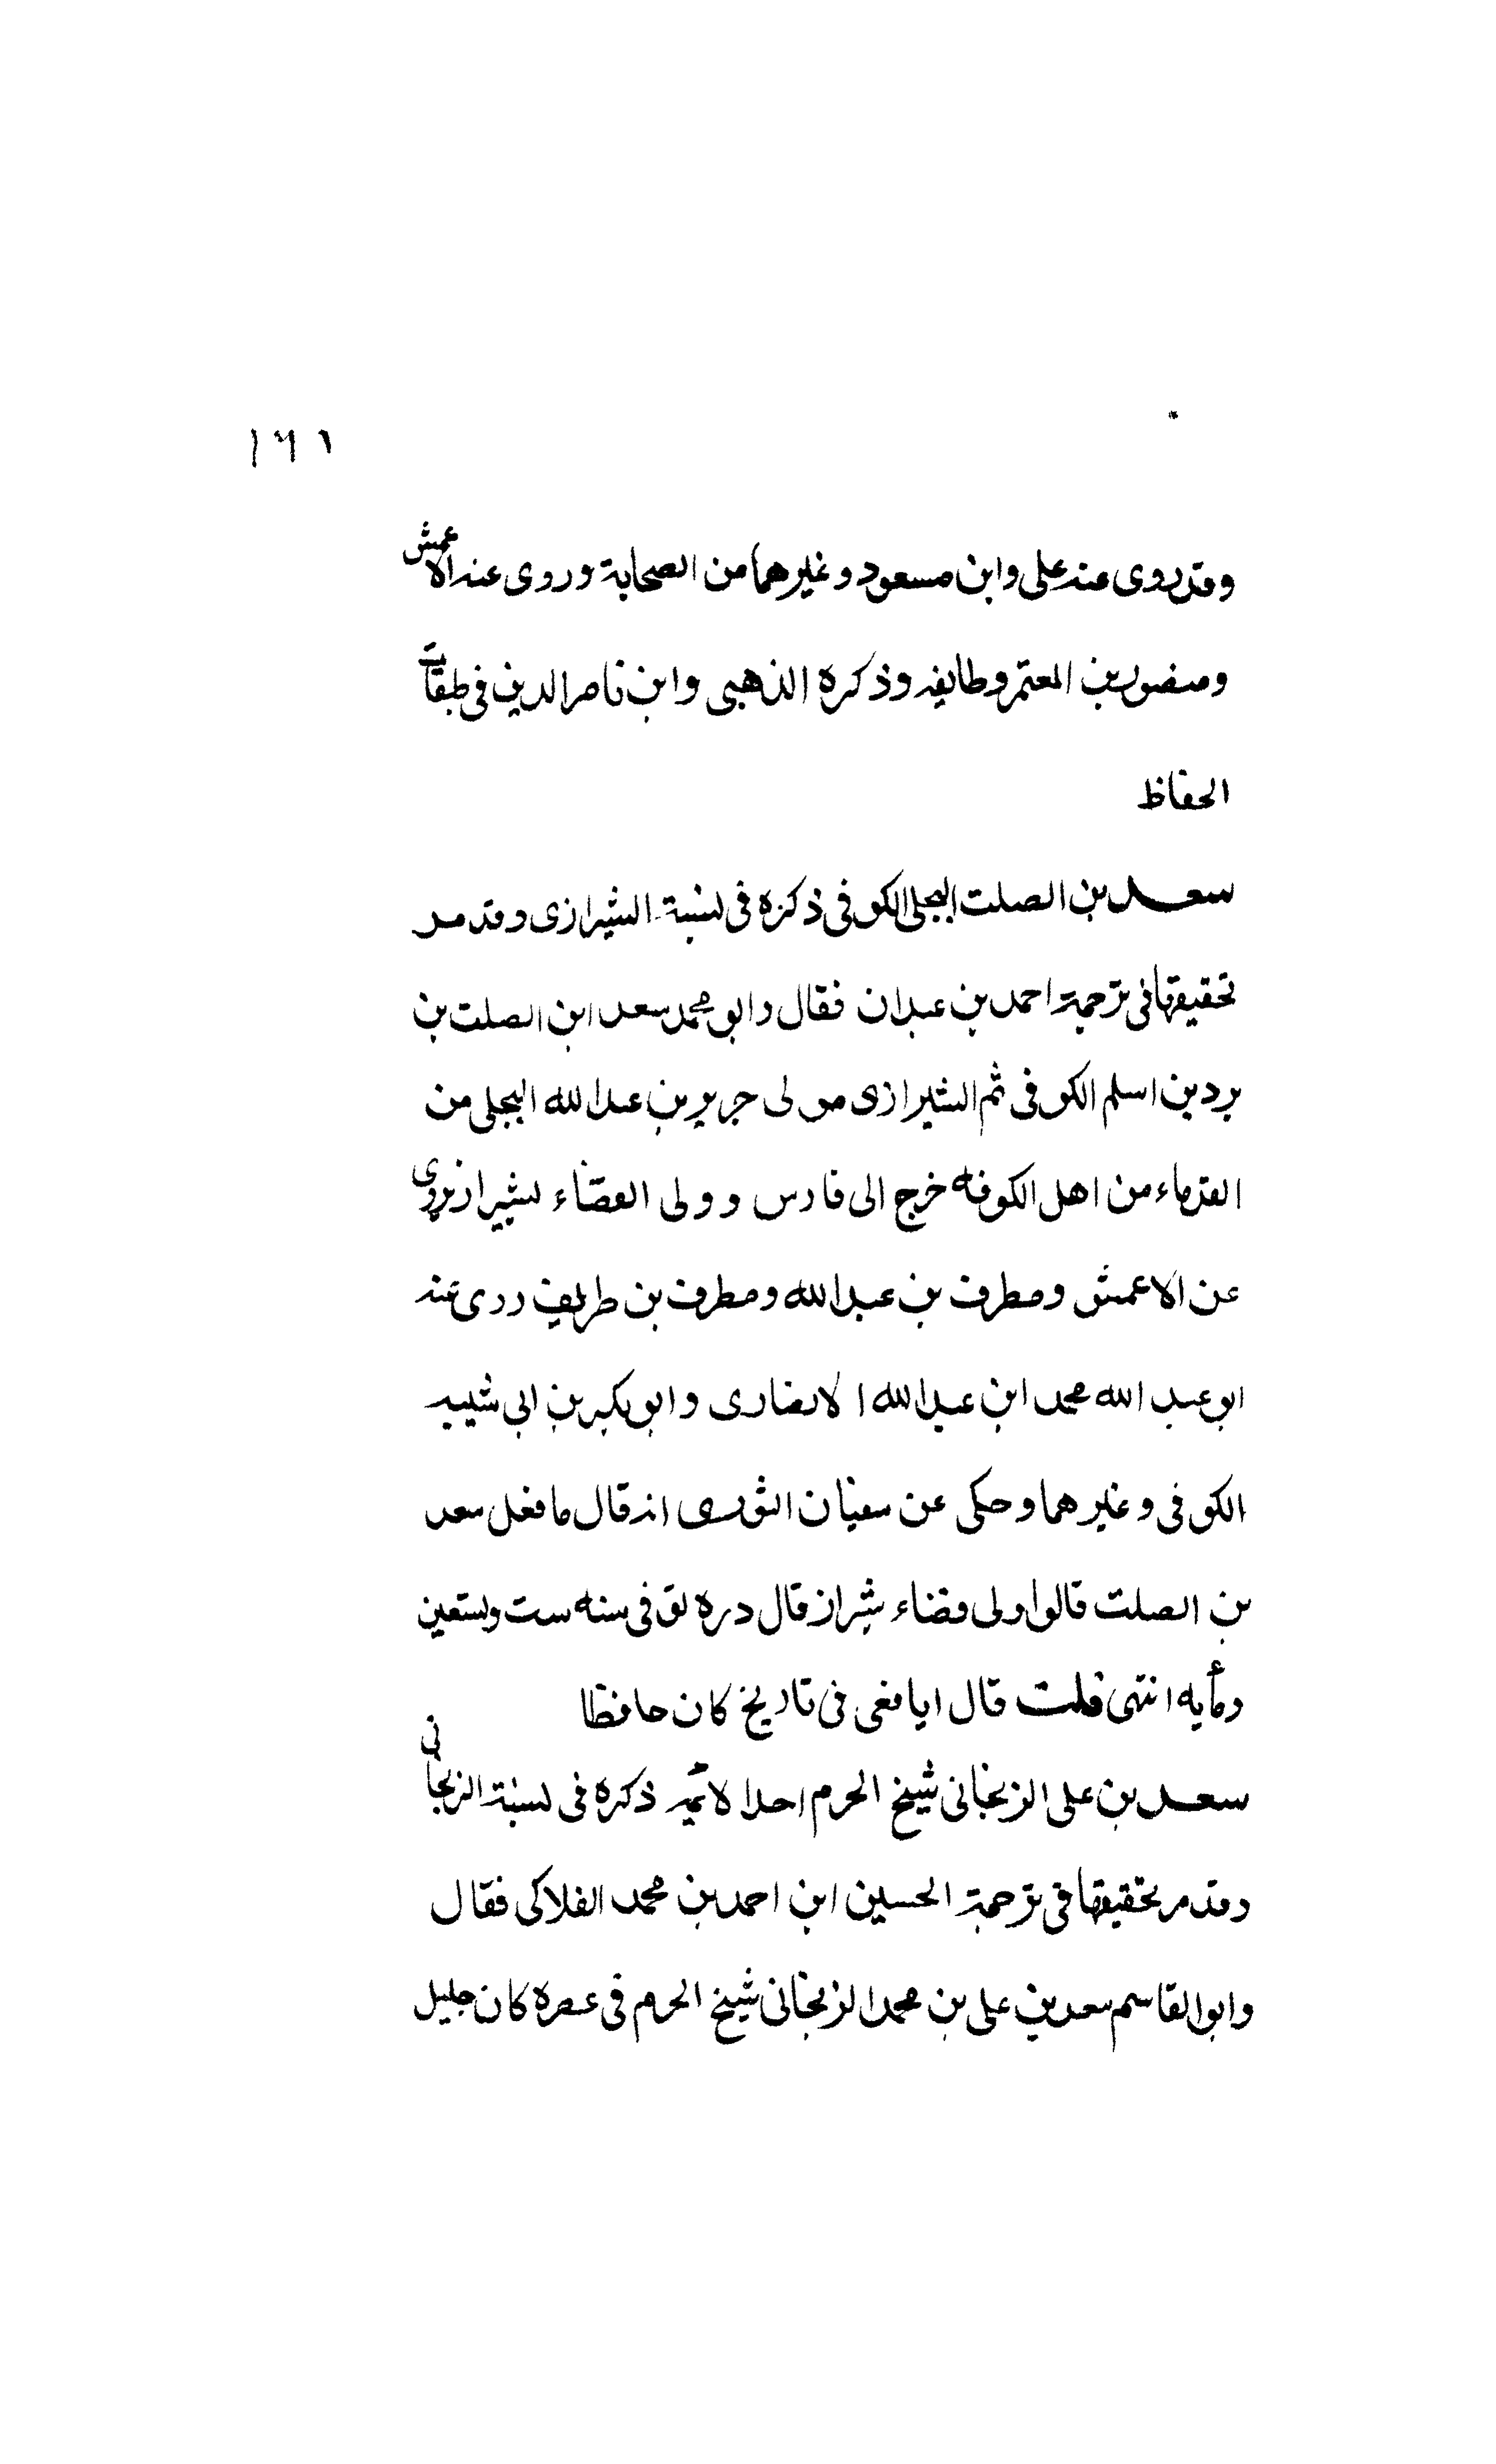 ١٦١
وقد روى عنه على وابن مسعود وغيرهما من الصحابة وروى عنه الاعمش
ومنصور بن المعتمر وطايفه وذكره الذهبى وابن ناصر الدين فى طبقات
الحفاظ
سعد بن الصلت البجلى الكوفى ذكره فى نسبة الشيرازى وقد مر
تحقيقها فى ترجمة احمد بن عبدان فقال وابو محمد سعد ابن الصلت بن
برد بن اسلم الكوفى ثم الشيرازى مولى جرير بن عبد الله البجلى من
القدماء من اهل الكوفه خرج الى فارس وولى القضاء بشيراز يروى
عن الاعمش ومطرف بن عبد الله ومطرف بن طريف روى عنه
ابو عبد الله محمد ابن عبد الله الانصارى وابو بكر بن ابى شيبه
الكوفى وغيرهما وحكى عن سفيان الثورى انه قال ما فعل سعد
بن الصلت قالوا ولى قضاء شيراز قال دره فى سنه ست وتسعين
ومأيه انتهى قلت قال اليافعى فى تاريخ كان حافظا
سعد بن على الزنجانى شيخ الحرم احد الائمه ذكره فى نسبة الزنجانى
وقد مر تحقيقها فى ترجمة الحسين ابن احمد بن محمد الفلاكى فقال
وابو القاسم سعد بن على بن محمد الزنجانى شيخ الحرم فى عصره كان جليل